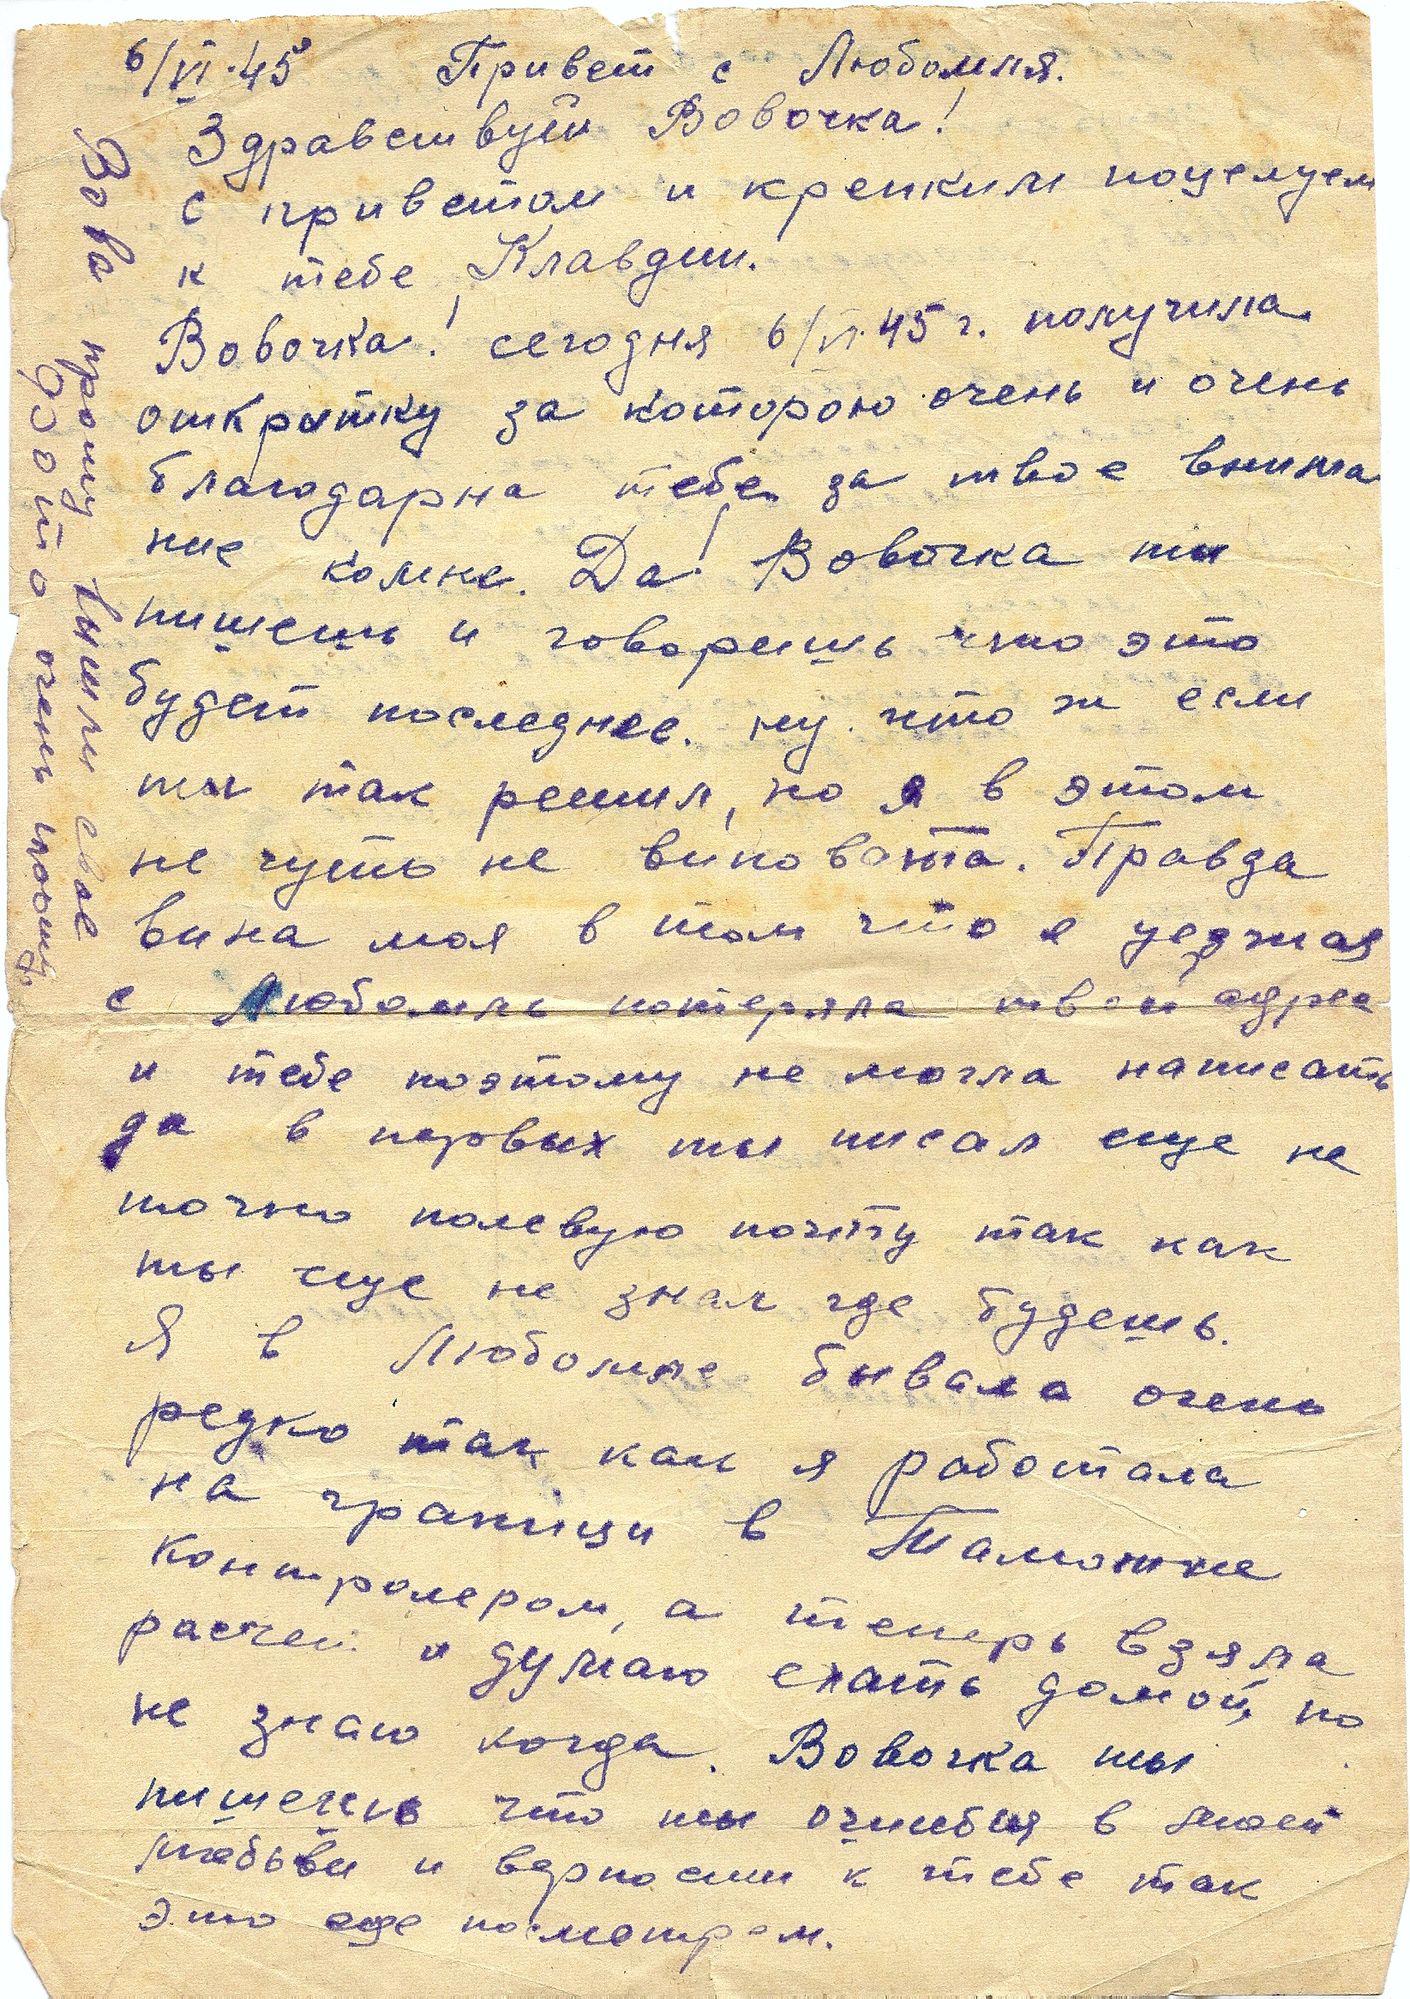 6/VI.45 Привет с Любомля.
Здравствуй Вовочка!
с приветом и крепким поцелуем
к тебе Клавдии.
Вовочка! сегодня 6/VI.45 г. получила
открытку за которою очень и очень
благодарна тебе за твое внима
ние комне. Да! Вовочка ты
пишешь и говоришь что это
будет последнее. ну что ж если
ты так решил, но я в этом
не чуть не виновата. Правда
вина моя в том что я уезжая
с Любомль потеряла твой адрес
и тебе поэтому не могла написать
да в первых ты писал еще не
точно полевую почту так как
ты еще не знал где будешь.
Я в Любомле бывала очень
редко так как я работала
на границы в Таможне
контролером, а теперь взяла
расчет и думаю ехать домой, но
не знаю когда. Вовочка ты
пишешь что ты ошибся в моей
любьви и верности к тебе так
это еще посмотрем.
Вова прошу вышли свое
фото очень прошу.